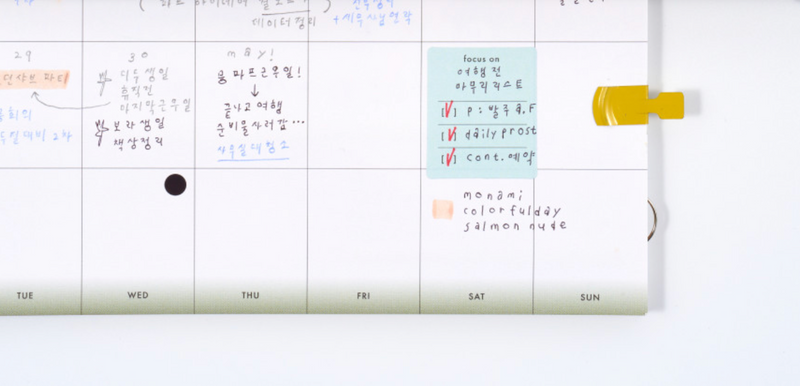 데이터정리
+세무사님연락
29
파티
회의
대비 2차
30
생일
휴직전
마지막근무일
보라생일
책상정리
may!
파트근무일!
↓
끝나고여행
준비물사러감...
focus on
여행 전
마무리리스트
[✓] p : 발주 Q.F
[✓] daily prost
[✓] cont. 예약
monami
colorfulday
salmon nude
TUE WED THU FRI SAT SUN